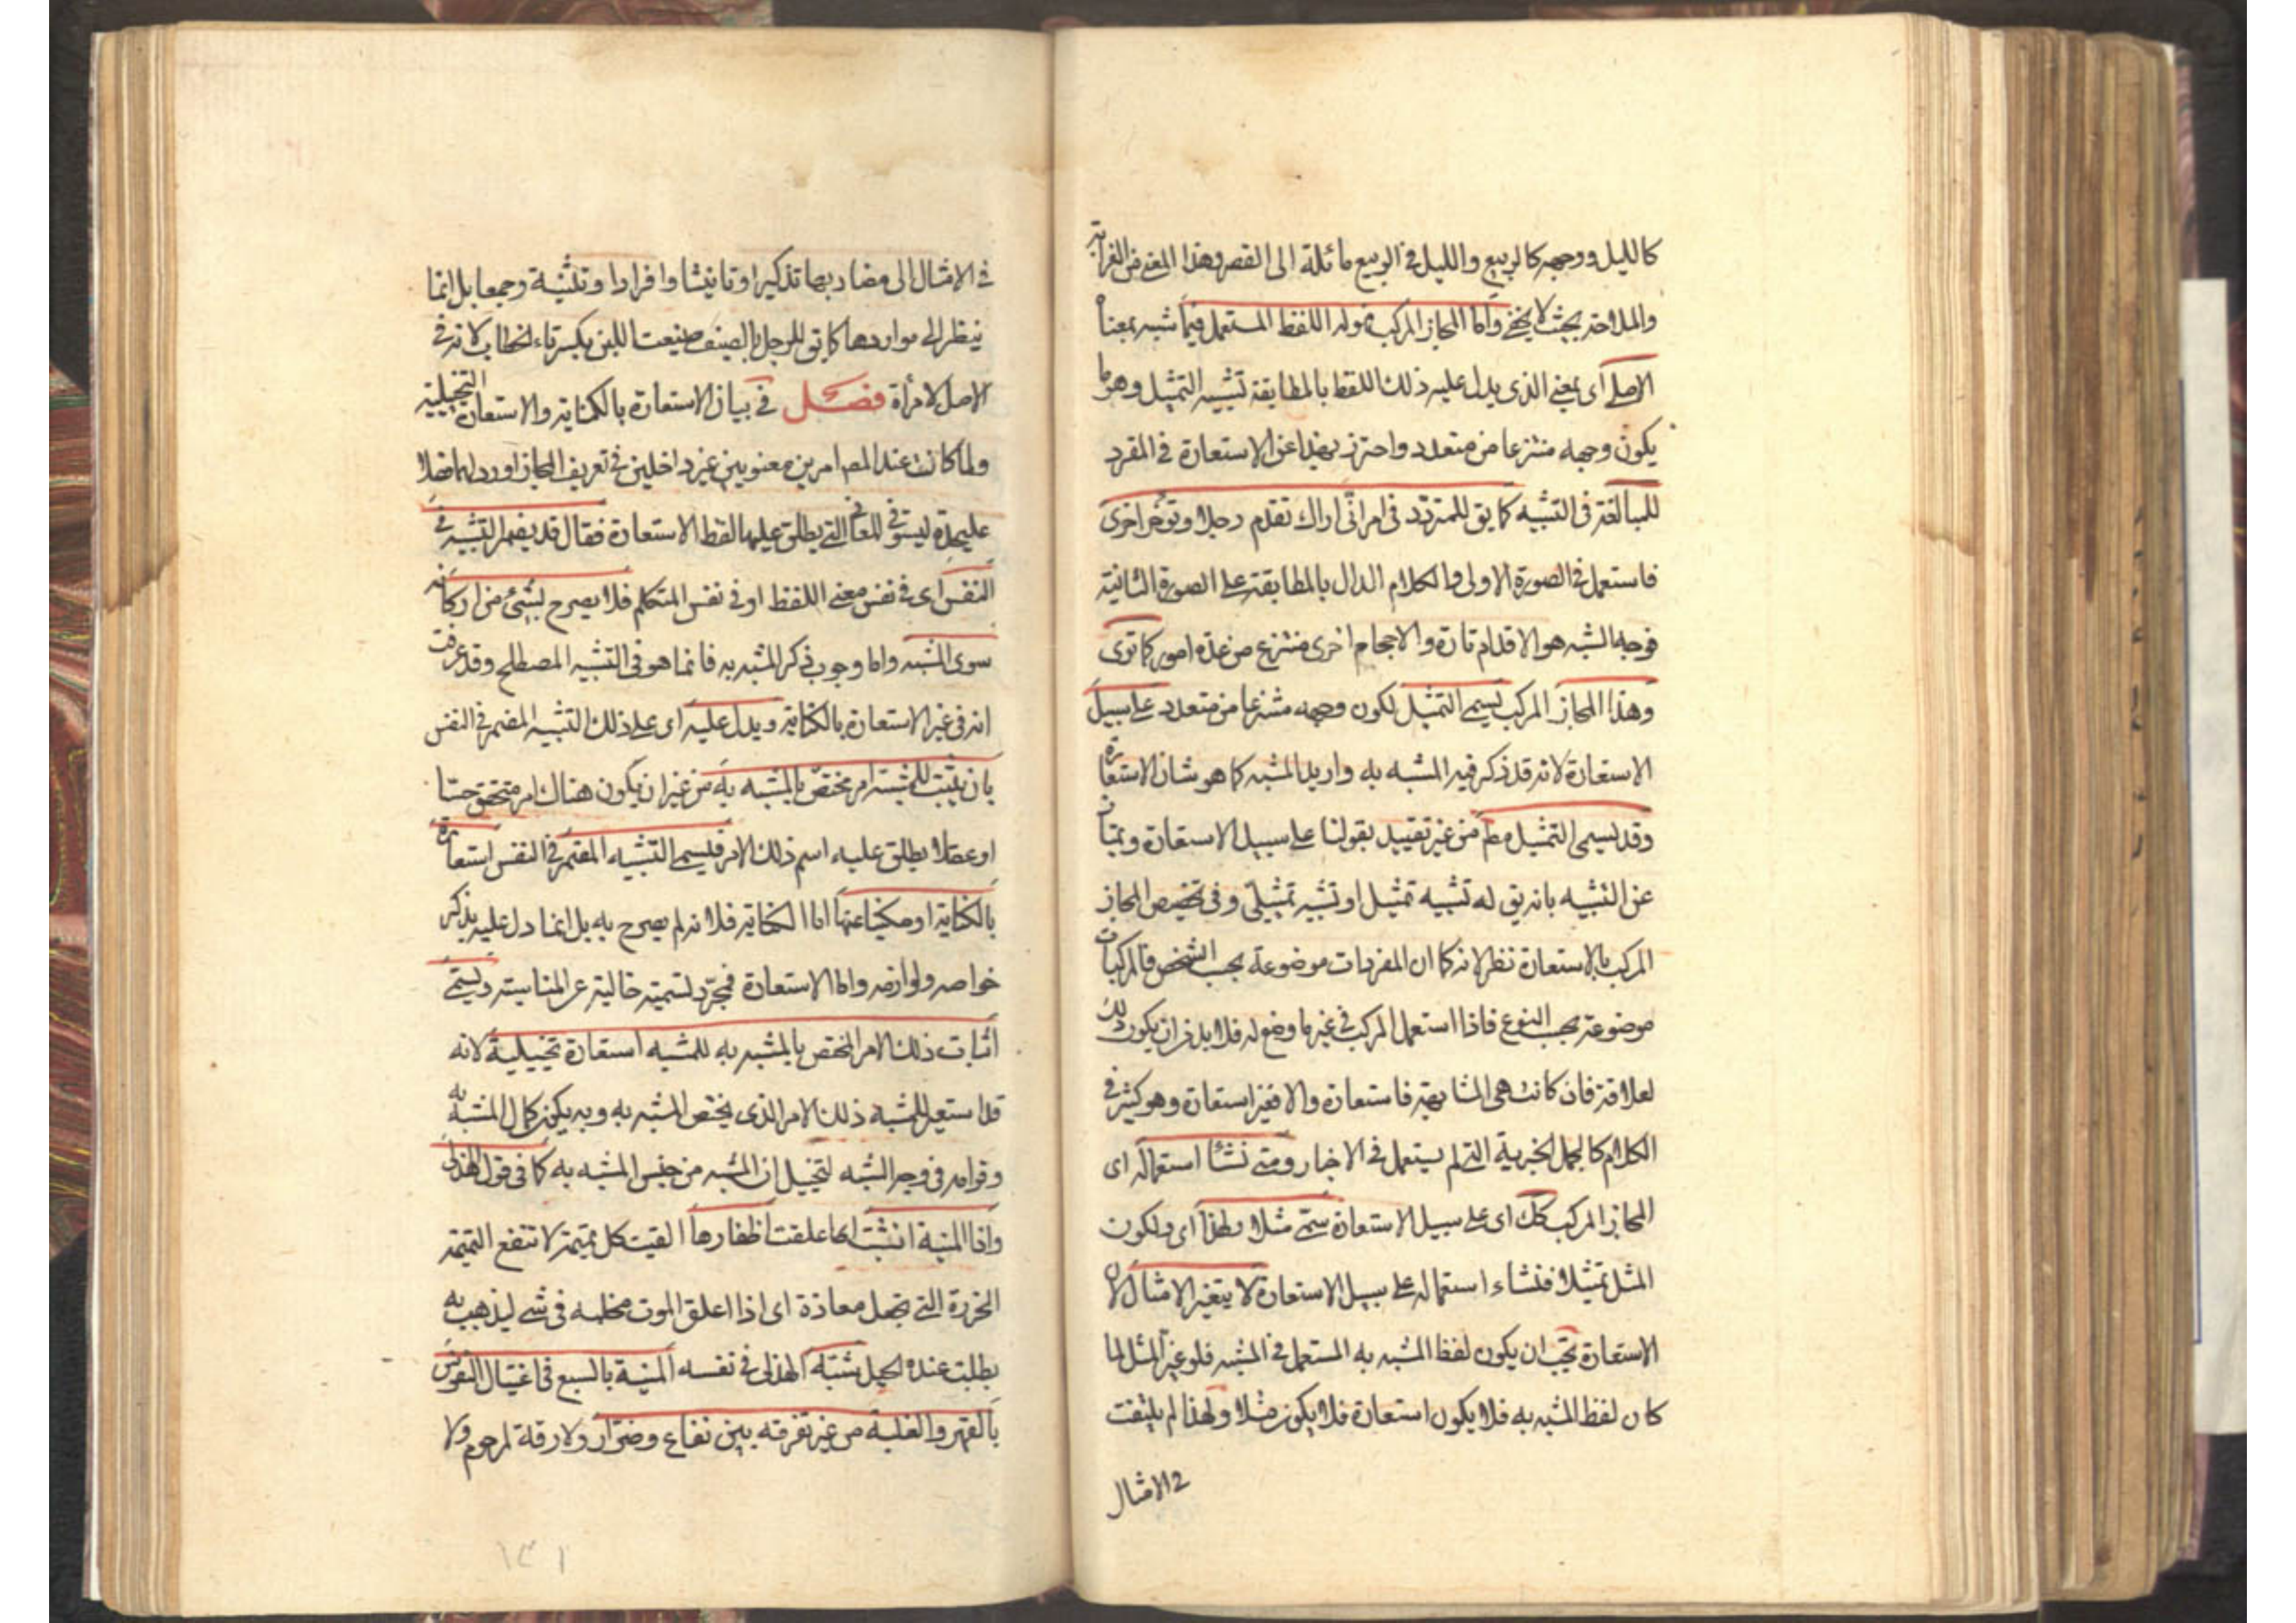 كالليل ووجهه كالربيع والليل في الربيع مائلة الى القصر وهذا المعنى من الغرابة
والملاحة بحيث لا يخفى واما المجاز المركب فهو اللفظ المستعمل فيما شبه بمعناه
الاصلي اى بمعنى الذى يدل عليه ذلك اللفظ بالمطابقة تشبيه التمثيل وهو ما
يكون وجهه منتزعا من متعدد واحترز بهذا عن الاستعارة في المفرد
للمبالغة في التشبيه كما يق للمتردد في امر انى اراك تقدم رجلا وتؤخر اخرى
فاستعمل في الصورة الاولى الكلام الدال بالمطابقة على الصورة الثانية
فوجه الشبه هو الاقدام تارة والاحجام اخرى منتزع من عدة امور كما ترى
وهذا المجاز المركب يسمى التمثيل لكون وجهه منتزعا من متعدد على سبيل
الاستعارة لانه قد ذكر فيه المشبه به واريد المشبه كما هو شان الاستعارة
وقد يسمى التمثيل مطم من غير تقييد بقولنا على سبيل الاستعارة ويمتاز
عن التشبيه بانه يق له تشبيه تمثيل او تشبيه تمثيلي وفى تخصيص المجاز
المركب بالاستعارة نظر لانه كما ان المفردات موضوعة بحسب الشخص فالمركبات
موضوعة بحسب النوع فاذا استعمل المركب في غير ما وضع له فلا بد من ان يكون ذلك
لعلاقة فان كانت هي المشابهة فاستعارة والا فغير استعارة وهو كثير في
الكلام كالجمل الخبرية التى لم يستعمل في الاخبار ومتى نشأ استعماله اى
المجاز المركب كك اى على سبيل الاستعارة سمى مثلا ولهذا اى ولكون
المثل تمثيلا فشاء استعماله على سبيل الاستعارة لا يتغير الامثال لان
الاستعارة يجب ان يكون لفظ المشبه به المستعمل في المشبه فلو غير المثل لما
كان لفظ المشبه به فلا يكون استعارة فلا يكون مثلا ولهذا لم يلتفت
في الامثال
في الامثال الى مضاربها تذكيرا وتانيثا وافرادا وتثنية وجمعا بل انما
ينظر الى مواردها كما يق للرجل بالصيف ضيعت اللبن بكسر تاء الخطاب لانه في
الاصل لامرأة فصل في بيان الاستعارة بالكناية والاستعارة التخييلية
ولما كانت عند المص امرين معنويين غير داخلين في تعريف المجاز اورد لهما فصلا
عليحدة ليستوفى المعانى التى يطلق عليها لفظ الاستعارة فقال قد يضمر التشبيه في
النفس اى في نفس معنى اللفظ او في نفس المتكلم فلا يصرح بشئ من اركانه
سوى المشبه واما وجوب ذكر المشبه به فانما هو في التشبيه المصطلح وقد عرفت
انه في غير الاستعارة بالكناية ويدل عليه اى على ذلك التشبيه المضمر في النفس
بان يثبت للمشبه امر مختص بالمشبه به من غير ان يكون هناك امر متحقق حسا
او عقلا يطلق عليه اسم ذلك الامر فيسمى التشبيه المضمر في النفس استعارة
بالكناية او مكنيا عنها اما الكناية فلانه لم يصرح به بل انما دل عليه بذكر
خواصه ولوازمه واما الاستعارة فمجرد تسمية خالية عن المناسبة ويسمى
اثبات ذلك الامر المختص بالمشبه به للمشبه استعارة تخييلية لانه
قد استعير للمشبه ذلك الامر الذى يختص المشبه به وبه يكون كمال المشبه به
وقوامه في وجه الشبه لتخييل ان المشبه من جنس المشبه به كما في قول الهذلى
واذا المنية انشبت اى علقت اظفارها الفيت كل تميمة لا تنفع التميمة
الخرزة التى تجعل معاذة اى اذا اعلق الموت مخلبه في شى ليذهب به
بطلت عنده الحيل شبه الهذلى في نفسه المنية بالسبع في اغتيال النفوس
بالقهر والغلبة من غير تفرقة بين نفاع وضرار ولا رقة لمرحوم ولا
١٣١